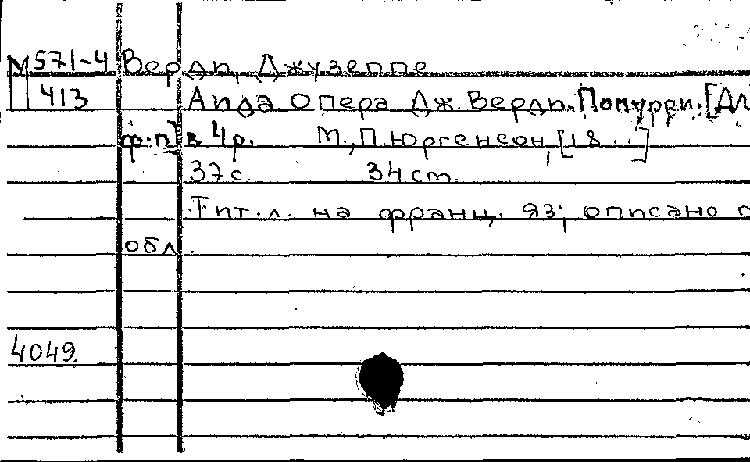 М 571-4 Верди, Джузеппе
413 Аида Опера Дж. Верди. Попурри. [Дл
ф.-п.] в 4 р. М., П. Юргенсон, [18...]
37 с. 34 cm.
Тит. л. на франц. яз; описано п
обл.
4049.